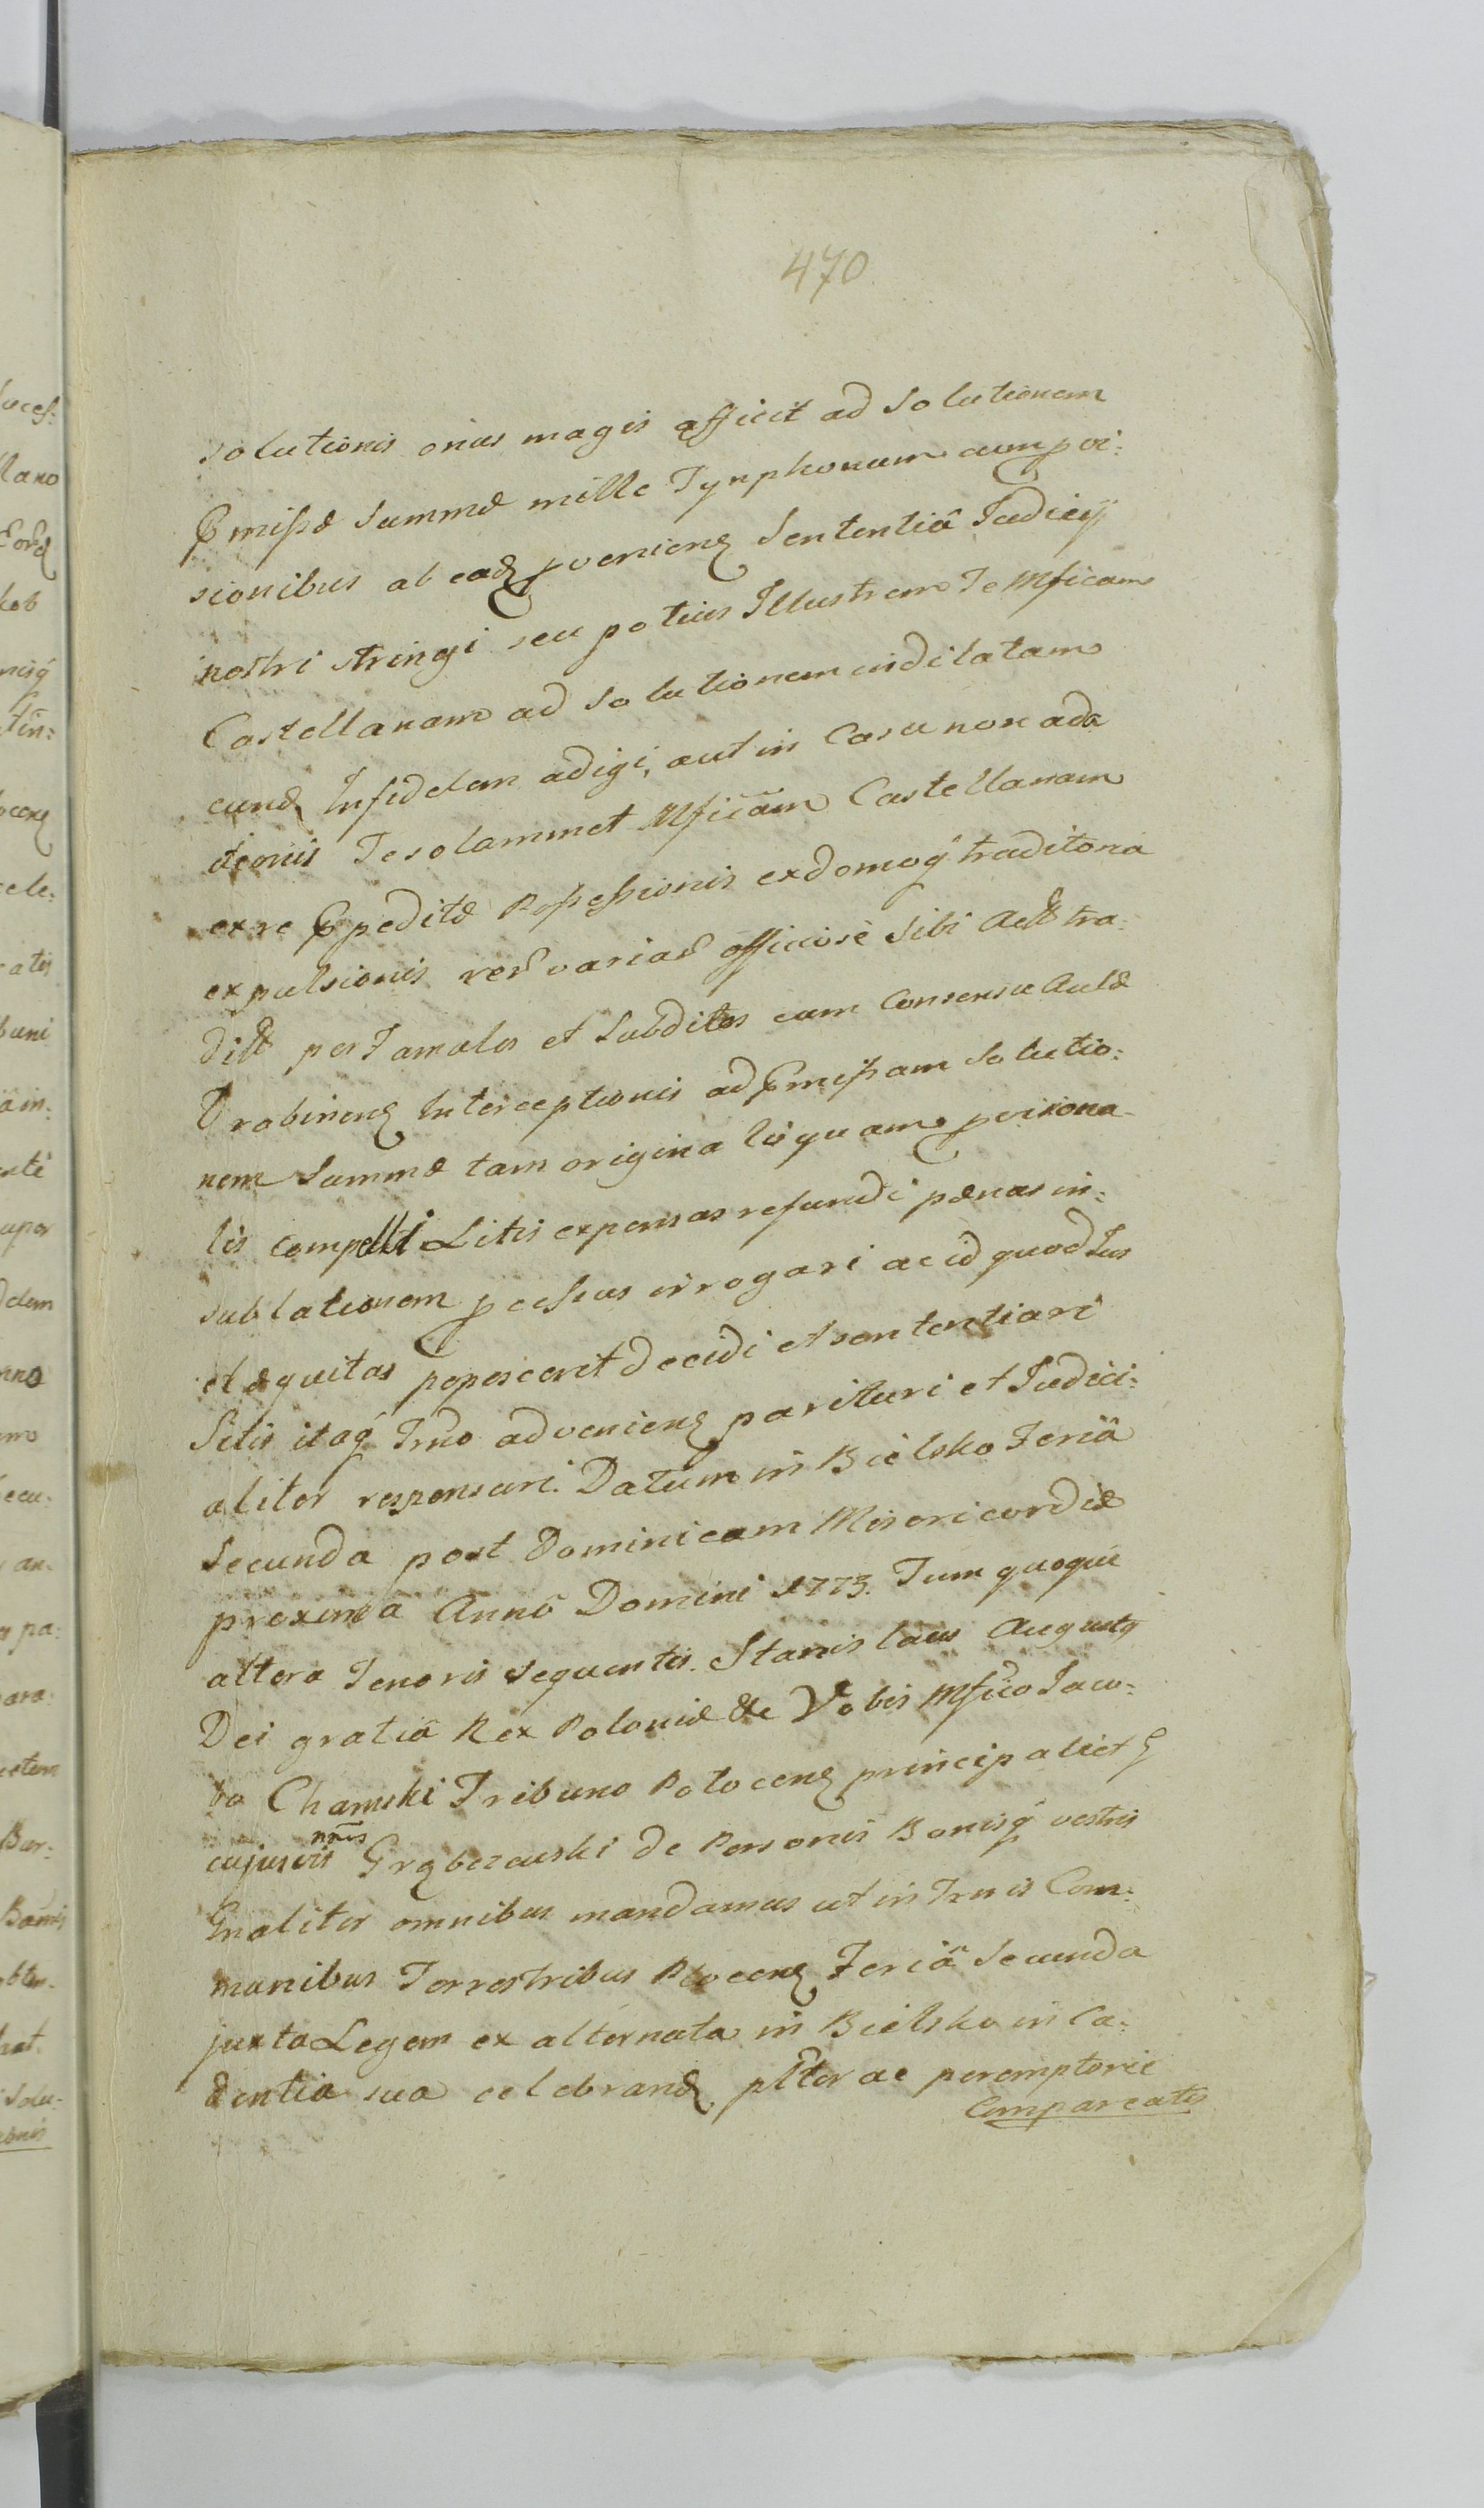 470
solutionis onus magis afficit ad Solutionem
Pmissæ Summæ mille Tynphonum cum provi:
sionibus ab eadq provenienq Sententiâ Judicij
nostri stringi seu potius Illustrem Te Mficam
Castellanam ad Solutionem indilatam
cundq Infidelem adigi, aut in Casu non adi
tionis Te solammet Mficam Castellanam
ex re Ppeditæ Possessionis ex domoq traditoria
expulsionis res varias officiosè Sibi
dist per Famulos et Subditos cum Consensu Aulæ
Drobinenq Interceptionis ad Pmissam Solutio:
nem Summæ tam originalis quam proviziona
lis compelli Litis expensas refundi pænas in:
sublationem processus irrogari ac id quod Jus
et æquitas poposcerit decidi et sententiari
Sitis itaq Trno advenienq parituri et Judici:
aliter responsuri. Datum in Bielsko Feriâ
Secunda post Dominicam Misericordiæ
proximâ Annô Domini 1773. Tum quoque
altera Tenoris sequentis. Stanislaus Augustq
Dei gratiâ Rex Poloniæ &c Vobis Mfico Jaco:
bo Chamski Tribuno Plocenq principali et
cujusvis nnis Grąbczewski de Personis Bonisq vestris
Gnaliter omnibus mandamus ut in Trnis Com:
munibus Terrestribus Plocenq Feriâ Secunda
juxta Legem ex alternata in Bielsko in Ca:
dentia sua celebrandq plter ac peremptorie
Compareatis